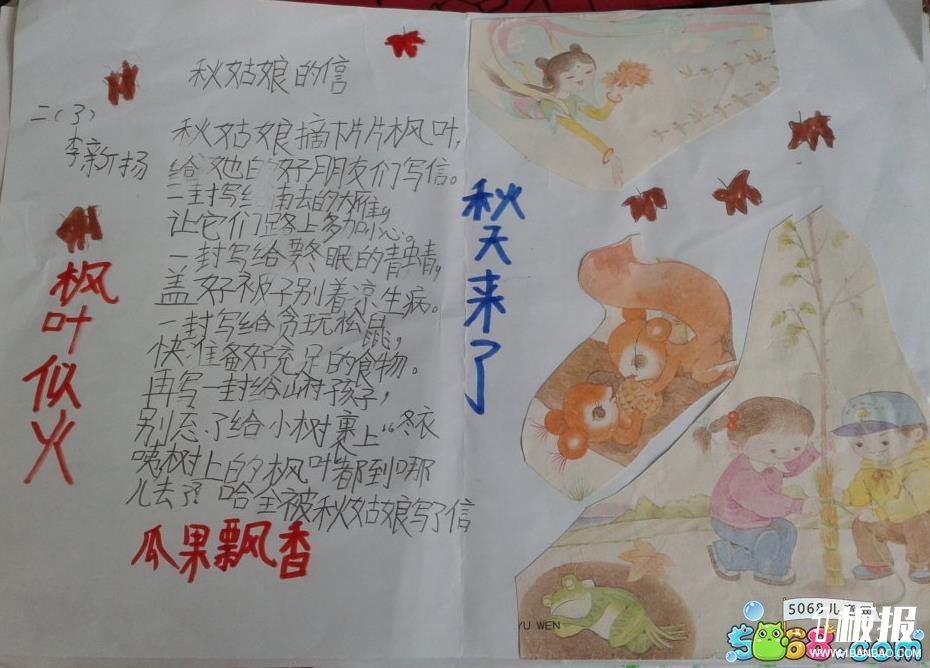 秋姑娘的信
二(3)
李新扬
秋姑娘摘下片片枫叶,
给她的好朋友们写信。
一封写给南去的大雁,
让它们路上多加小心。
一封写给要冬眠的青蛙,
盖好被子别着凉生病。
一封写给贪玩松鼠,
快准备好充足的食物。
再写一封给山村孩子,
别忘了给小树裹上“冬衣
咦树上的枫叶都到哪
儿去了?哈全被秋姑娘写了信
枫叶似火
瓜果飘香
秋天来了
YU WEN
5068儿童画
板报
5068.com
WWW.1BANBAO.COM